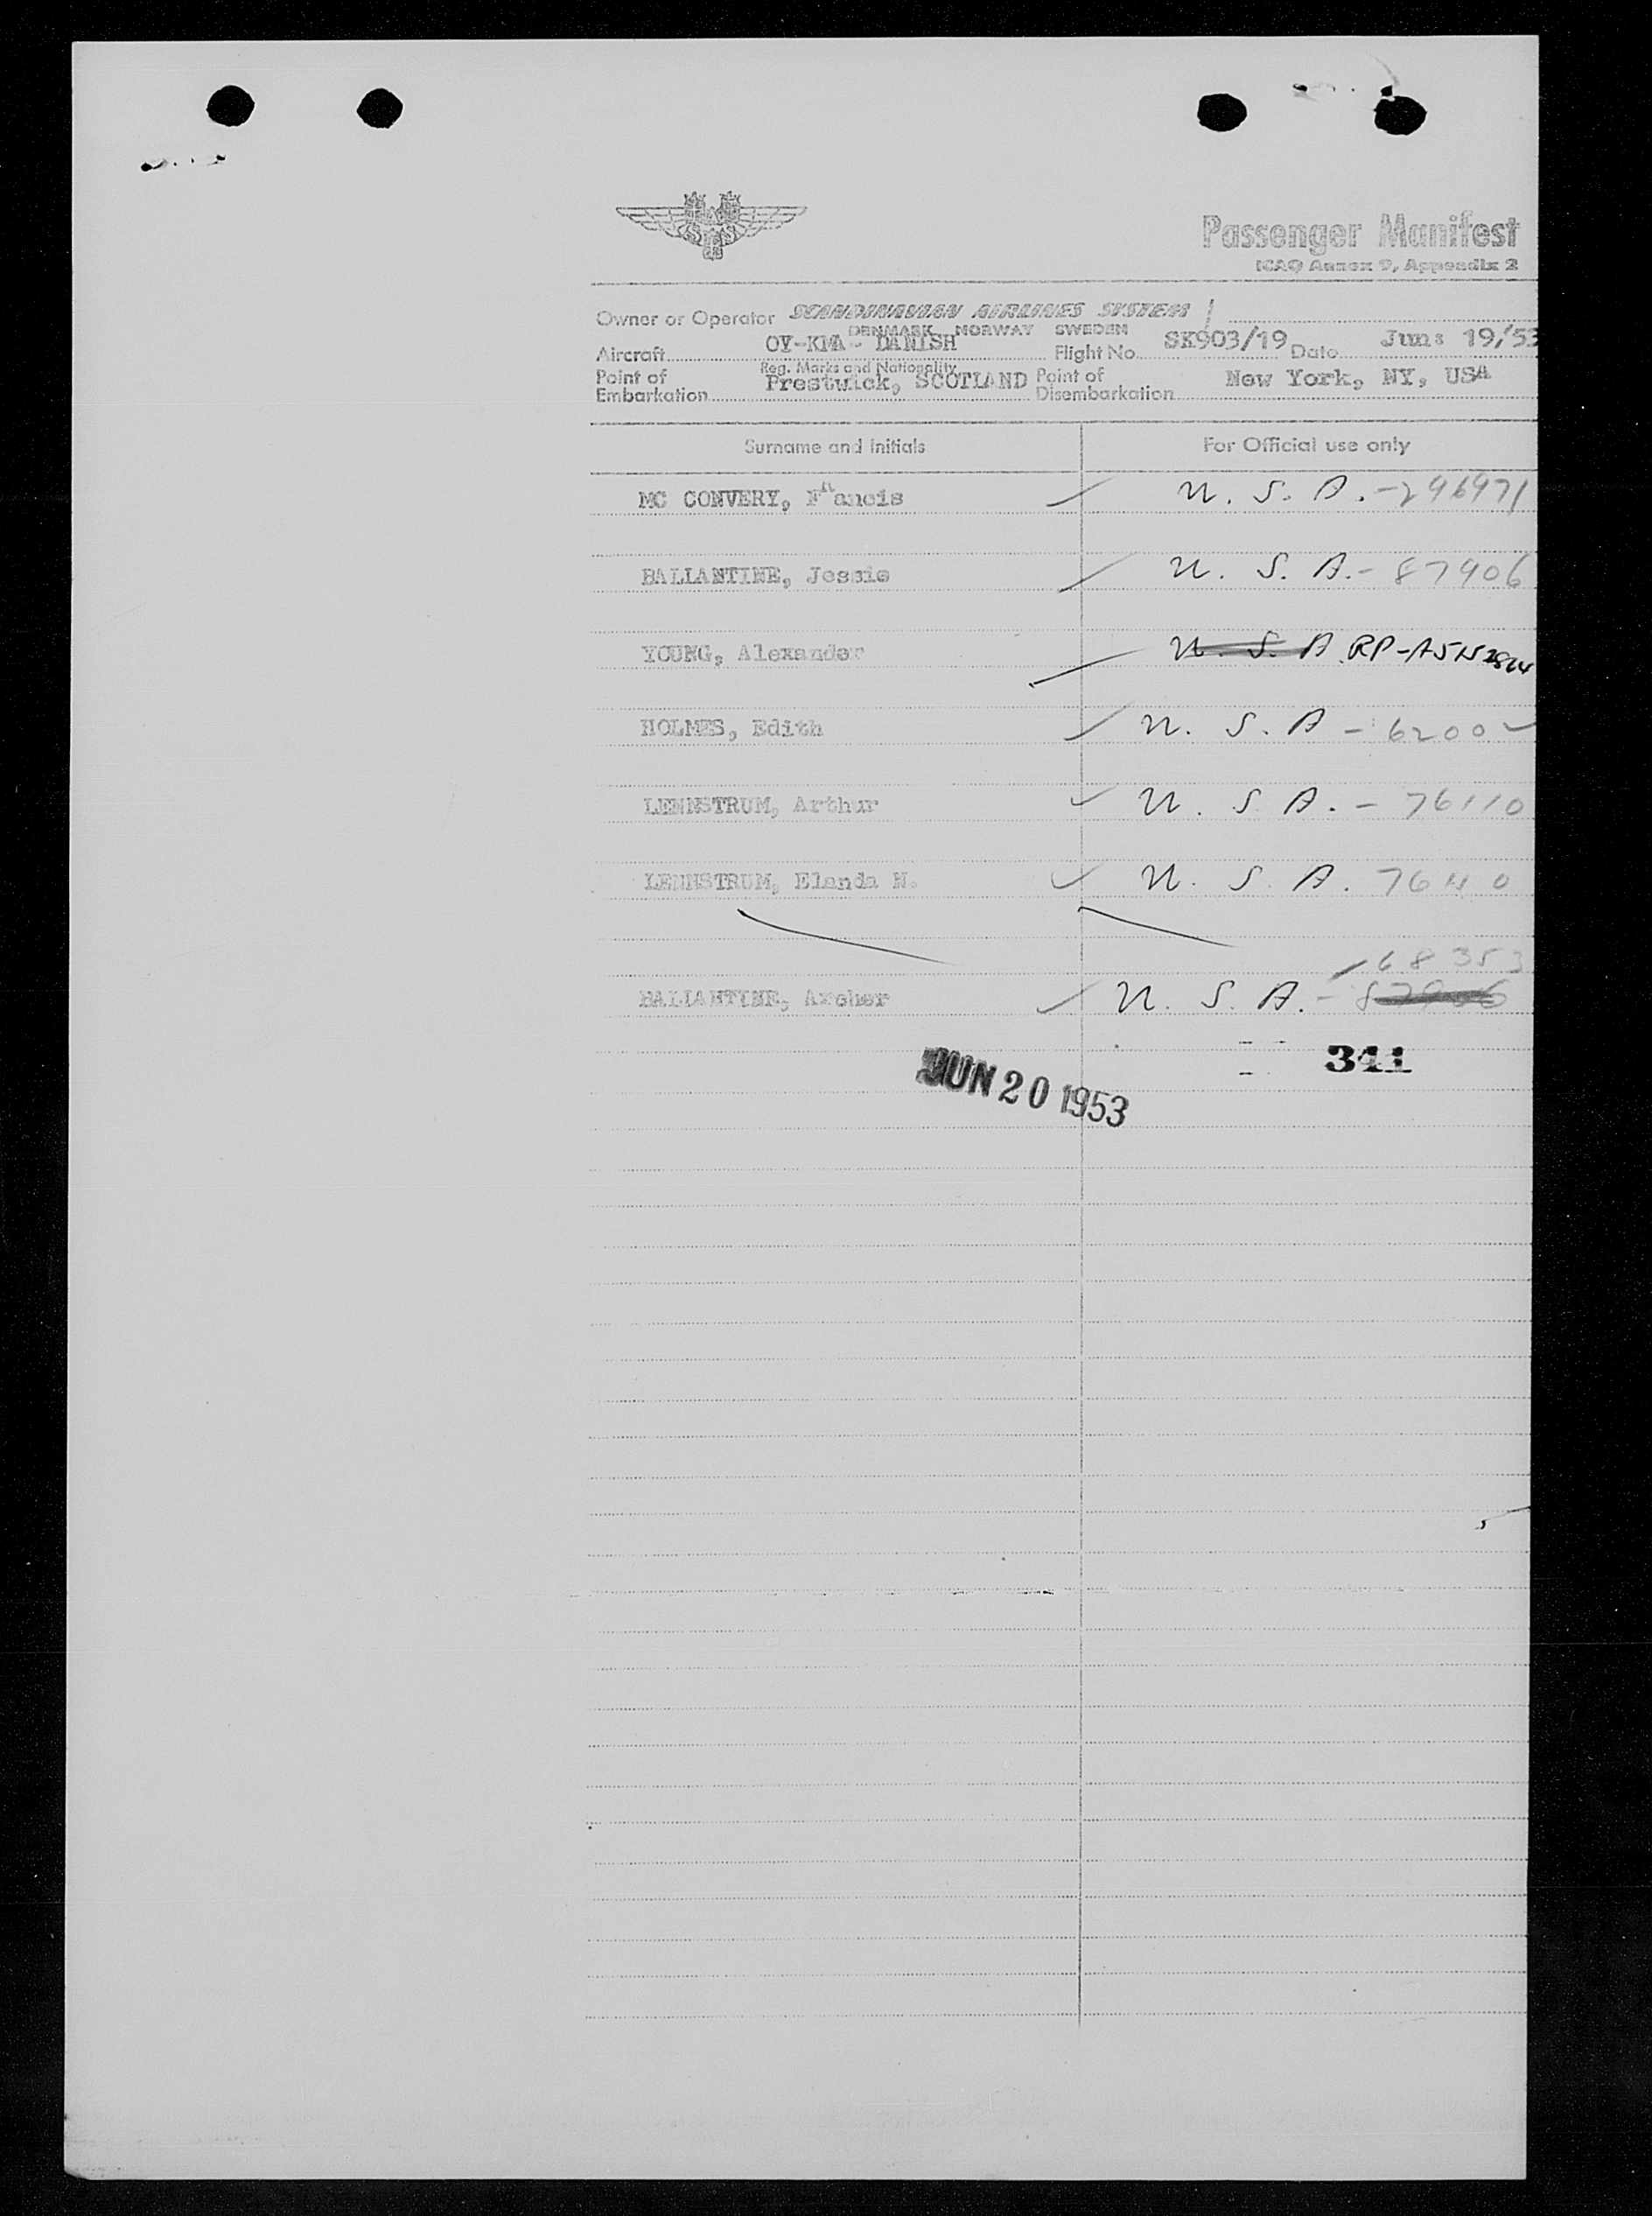 Passenger Manifest
ICAO Annex 9, Appendix 2
Owner or Operator SCANDINAVIAN AIRLINES SYSTEM
DENMARK NORWAY SWEDEN
Aircraft OY-KMA - DANISH Flight No. SK903/19 Date Jun: 19,'53
Reg. Marks and Nationality
Point of Embarkation Prestwick, SCOTLAND Point of Disembarkation New York, NY, USA
Surname and Initials For Official use only
MC CONVERY, Francis U. S. A. - 296971
BALLANTINE, Jessie U. S. A. - 87906
YOUNG, Alexander U. S. A. RP-A5152864
HOLMES, Edith U. S. A - 62002
LENNSTRUM, Arthur U. S. A. - 76110
LENNSTRUM, Elanda N. U. S. A. 76110
68353
BALLANTINE, Archer U. S. A. - 87906
341
JUN 20 1953